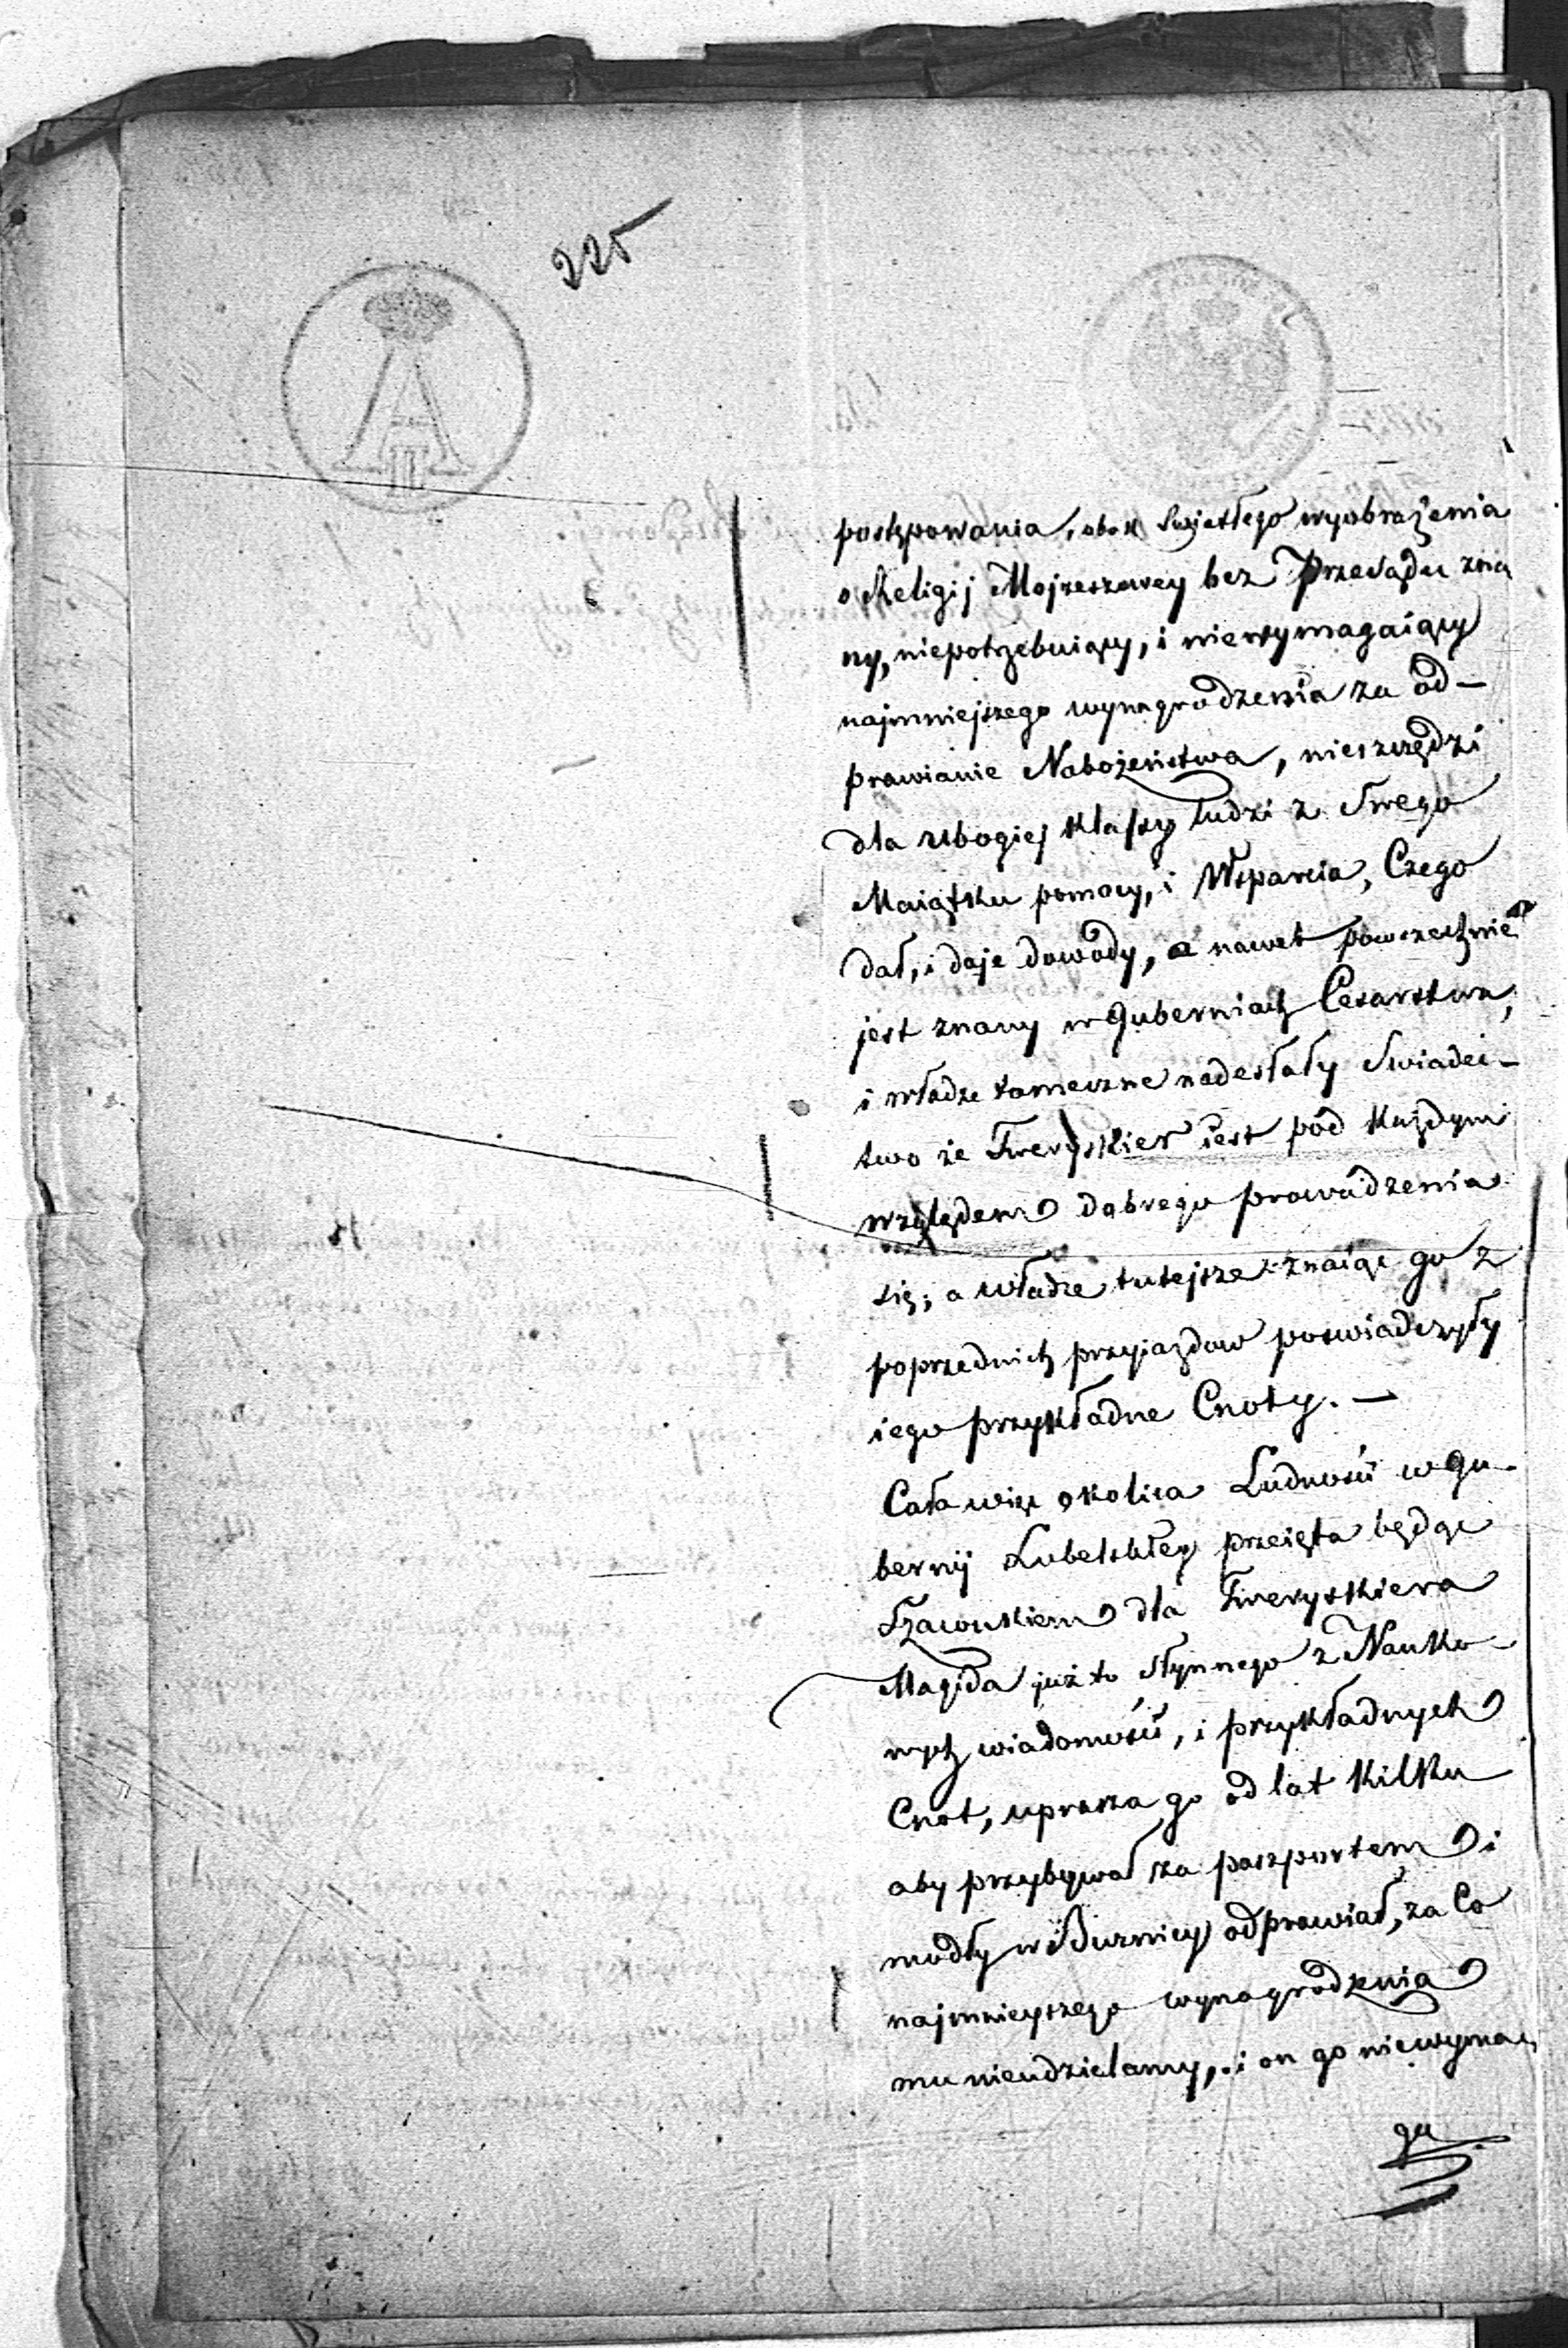 225
A
II
postępowania, obok Swiatłego wyobrażenia
o Religij Mojżeszowey bez Przesądu zna
ny, niepotrzebuiący, i niewymagaiący
najmniejszego wynagrodzenia za od–
prawianie Nabożeństwa, nieszczędzi
dla ubogiej Klassy Ludzi z Swego
Maiątku pomocy, i Wsparcia, Czego
dał, i daje dowody, a nawet powszechnie
jest znany w Guberniach Cesarstwa,
i władze tameczne nadesłały Swiadec–
two że Twerskier iest pod każdym
względem dobrego prowadzenia
się; a władze tutejsze znaiąc go z
poprzednich przyiazdow poswiadczyły
iego przykładne Cnoty. —
Cała więc okolica Ludność w Gu–
bernij Lubelskiey przeięta będąc
Szacunkiem dla Twerskiera
Magida już to słynnego z Nauko–
wych wiadomości, i przykładnych
Cnot, uprasza go od lat Kilku
aby przybywał za paszportem i
modły w Bużnicy odprawiał, za Co
najmnieyszego wynagrodzenia
mu nieudzielamy, i on go niewyma–
ga